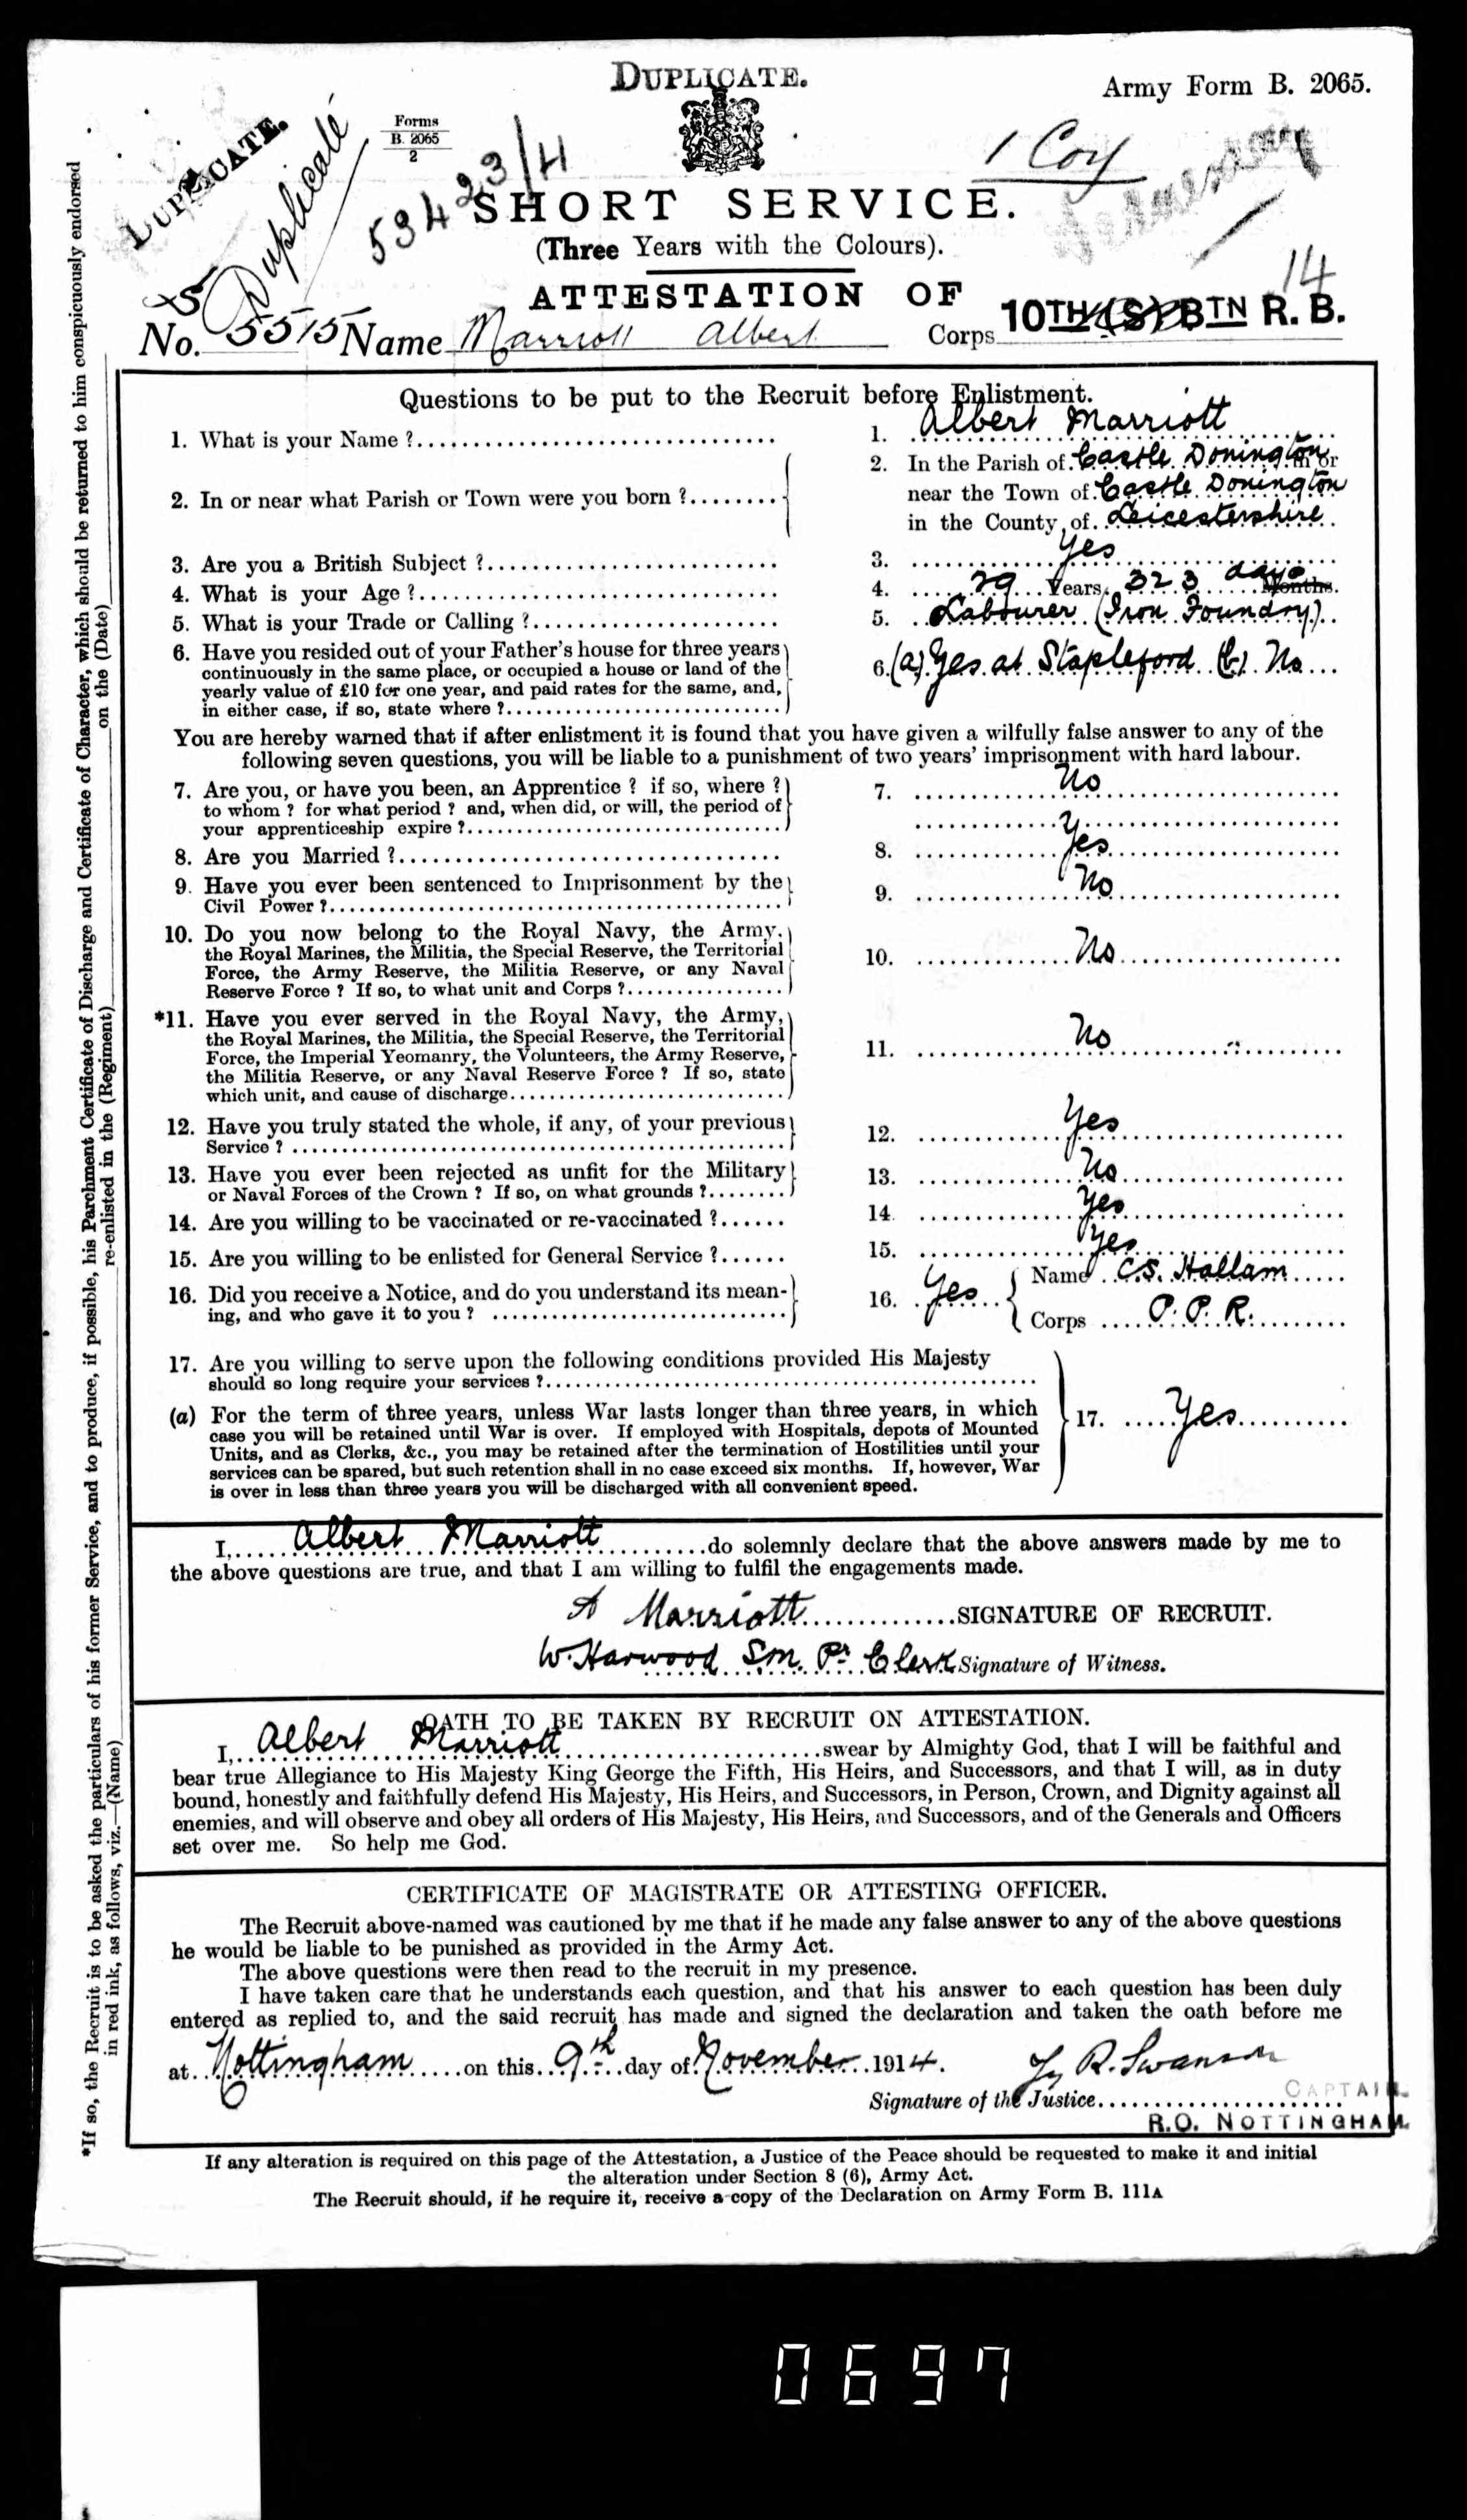 DUPLICATE.
Army Form B. 2065.
DUPLICATE.
Duplicate
Forms
B. 2065
2
53423/H
1 Coy
SHORT SERVICE.
(Three Years with the Colours).
14
ATTESTATION OF
No. 5515 Name Marriott Albert Corps 10TH (S) BTN R. B.
Questions to be put to the Recruit before Enlistment.
1. What is your Name ? 1. Albert Marriott
2. In or near what Parish or Town were you born ? 2. In the Parish of Castle Donington in or
near the Town of Castle Donington
in the County of Leicestershire
3. Are you a British Subject ? 3. Yes
4. What is your Age ? 4. 29 Years 323 days Months.
5. What is your Trade or Calling ? 5. Labourer (Iron Foundry)
6. Have you resided out of your Father's house for three years
continuously in the same place, or occupied a house or land of the
yearly value of £10 for one year, and paid rates for the same, and,
in either case, if so, state where ? 6. (a) Yes at Stapleford (b) No
You are hereby warned that if after enlistment it is found that you have given a wilfully false answer to any of the
following seven questions, you will be liable to a punishment of two years' imprisonment with hard labour.
7. Are you, or have you been, an Apprentice ? if so, where ? 7. No
to whom ? for what period ? and, when did, or will, the period of
your apprenticeship expire ?
8. Are you Married ? 8. Yes
9. Have you ever been sentenced to Imprisonment by the
Civil Power ? 9. No
10. Do you now belong to the Royal Navy, the Army,
the Royal Marines, the Militia, the Special Reserve, the Territorial
Force, the Army Reserve, the Militia Reserve, or any Naval
Reserve Force ? If so, to what unit and Corps ? 10. No
*11. Have you ever served in the Royal Navy, the Army,
the Royal Marines, the Militia, the Special Reserve, the Territorial
Force, the Imperial Yeomanry, the Volunteers, the Army Reserve,
the Militia Reserve, or any Naval Reserve Force ? If so, state
which unit, and cause of discharge 11. No
12. Have you truly stated the whole, if any, of your previous
Service ? 12. Yes
13. Have you ever been rejected as unfit for the Military
or Naval Forces of the Crown ? If so, on what grounds ? 13. No
14. Are you willing to be vaccinated or re-vaccinated ? 14. Yes
15. Are you willing to be enlisted for General Service ? 15. Yes
16. Did you receive a Notice, and do you understand its mean-
ing, and who gave it to you ? 16. Yes Name C.S. Hallam
Corps P. P. R.
17. Are you willing to serve upon the following conditions provided His Majesty
should so long require your services ?
(a) For the term of three years, unless War lasts longer than three years, in which
case you will be retained until War is over. If employed with Hospitals, depots of Mounted
Units, and as Clerks, &c., you may be retained after the termination of Hostilities until your
services can be spared, but such retention shall in no case exceed six months. If, however, War
is over in less than three years you will be discharged with all convenient speed.
17. Yes
I, Albert Marriott do solemnly declare that the above answers made by me to
the above questions are true, and that I am willing to fulfil the engagements made.
A Marriott SIGNATURE OF RECRUIT.
W. Harwood Sm. Pr Clerk Signature of Witness.
OATH TO BE TAKEN BY RECRUIT ON ATTESTATION.
I, Albert Marriott swear by Almighty God, that I will be faithful and
bear true Allegiance to His Majesty King George the Fifth, His Heirs, and Successors, and that I will, as in duty
bound, honestly and faithfully defend His Majesty, His Heirs, and Successors, in Person, Crown, and Dignity against all
enemies, and will observe and obey all orders of His Majesty, His Heirs, and Successors, and of the Generals and Officers
set over me. So help me God.
CERTIFICATE OF MAGISTRATE OR ATTESTING OFFICER.
The Recruit above-named was cautioned by me that if he made any false answer to any of the above questions
he would be liable to be punished as provided in the Army Act.
The above questions were then read to the recruit in my presence.
I have taken care that he understands each question, and that his answer to each question has been duly
entered as replied to, and the said recruit has made and signed the declaration and taken the oath before me
at Nottingham on this 9th day of November 1914. R. Swanson
Signature of the Justice
CAPTAIN
R.O. NOTTINGHAM
If any alteration is required on this page of the Attestation, a Justice of the Peace should be requested to make it and initial
the alteration under Section 8 (6), Army Act.
The Recruit should, if he require it, receive a copy of the Declaration on Army Form B. 111A
*If so, the Recruit is to be asked the particulars of his former Service, and to produce, if possible, his Parchment Certificate of Discharge and Certificate of Character, which should be returned to him conspicuously endorsed
in red ink, as follows, viz.—(Name) re-enlisted in the (Regiment) on the (Date)
0697